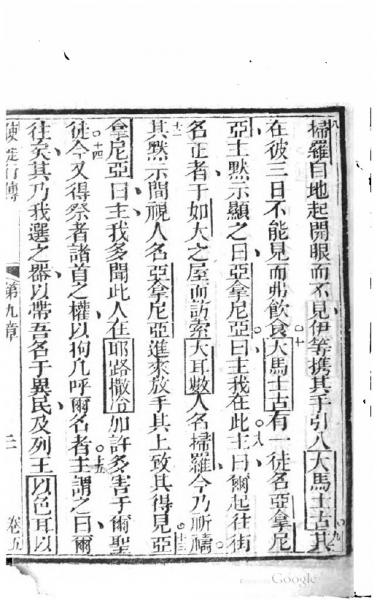 掃羅自地起開眼而不見伊等攜其手引入大馬士古其
在彼三日不能見而弗飲食大馬士古有一徒名亞拿尼
亞主默示顯之曰亞拿尼亞曰主我在此主曰爾起往街
名正者于如大之屋而訪索大耳數人名掃羅今乃祈禱
其默示間視人名亞拿尼亞進來放手其上致其得見亞
拿尼亞曰主我多聞此人在耶路撒冷加許多害于爾聖
徒今又得祭者諸首之權以拘凡呼爾名者主謂之曰爾
往矣其乃我選之器以帶吾名于異民及列王以色耳以
使徒行傳 第九章 三 卷五
Google